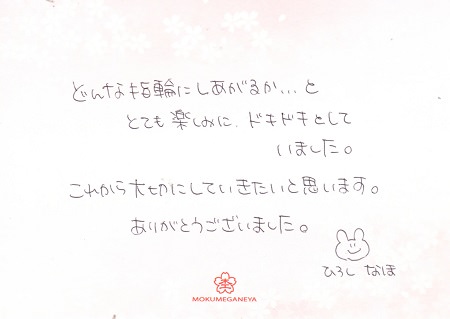 どんな指輪にしあがるか...と
とても楽しみに、ドキドキとして
いました。
これから大切にしていきたいと思います。
ありがとうございました。
ひろし なほ
MOKUMEGANEYA